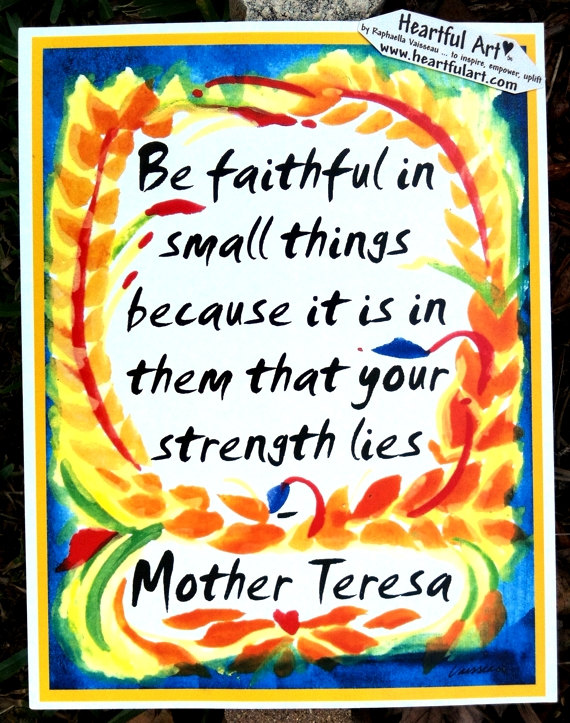 Heartful Art
by Raphaella Vaisseau ... to inspire, empower, uplift
www.heartfulart.com
Be faithful in
small things
because it is in
them that your
strength lies
Mother Teresa
Vaisseau